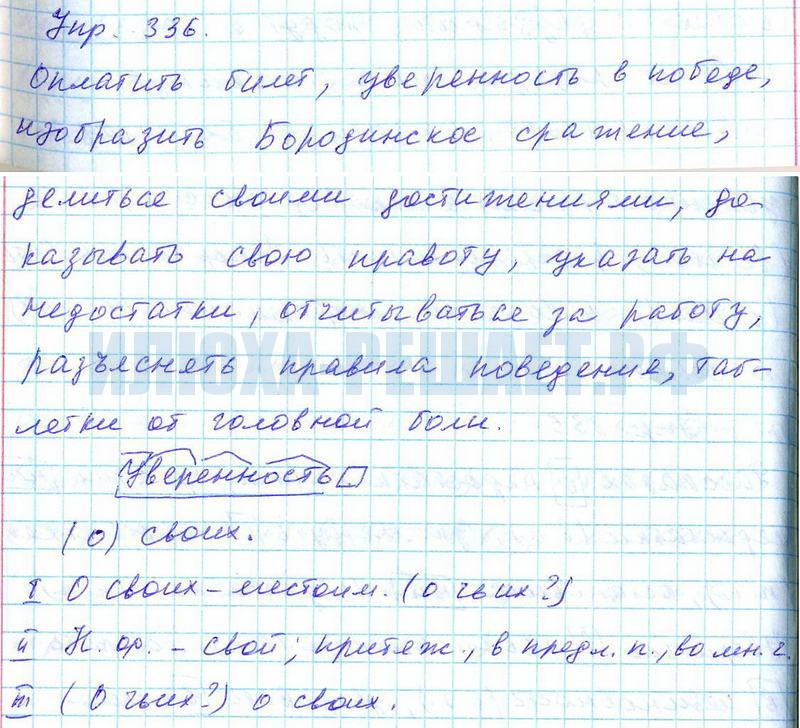 Упр. 336.
Оплатить билет, уверенность в победе,
изобразить Бородинское сражение,
делиться своими достижениями, до-
казывать свою правоту, указать на
недостатки, отчитываться за работу,
разъяснять правила поведения, таб-
летки от головной боли.
ИЛЮХА-РЕШАЕТ.РФ
Уверенность
(о) своих.
I О своих – местоим. (о чьих?)
II Н. ф. – свой; притяж., в предл. п., во мн. ч.
III (О чьих?) о своих.